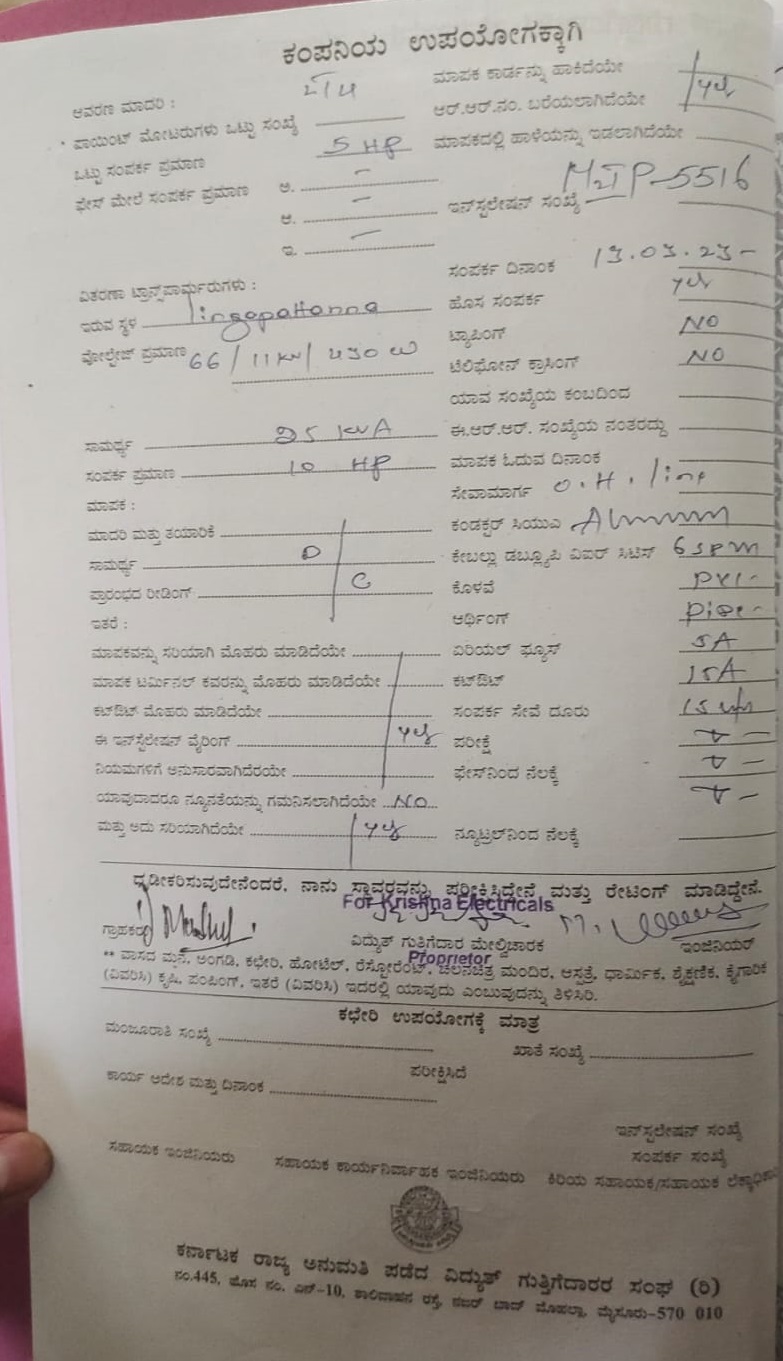 ಕಂಪನಿಯ ಉಪಯೋಗಕ್ಕಾಗಿ
ಆವರಣ ಮಾದರಿ : ಮಾಪಕ ಕಾರ್ಡನ್ನು ಹಾಕಿದೆಯೇ
ಪಾಯಿಂಟ್ ಮೋಟರುಗಳು ಒಟ್ಟು ಸಂಖ್ಯೆ ಆರ್.ಆರ್.ನಂ. ಬರೆಯಲಾಗಿದೆಯೇ yes
ಒಟ್ಟು ಸಂಪರ್ಕ ಪ್ರಮಾಣ 5 HP ಮಾಪಕದಲ್ಲಿ ಹಾಳೆಯನ್ನು ಇಡಲಾಗಿದೆಯೇ
ಫೇಸ್ ಮೇಲೆ ಸಂಪರ್ಕ ಪ್ರಮಾಣ ಅ. –
ಆ. – ಇನ್‌ಸ್ಟಲೇಷನ್ ಸಂಖ್ಯೆ 5516
ಇ. –
ಸಂಪರ್ಕ ದಿನಾಂಕ 13.03.23-
ವಿತರಣಾ ಟ್ರಾನ್ಸ್‌ಪಾರ್ಮರುಗಳು : ಹೊಸ ಸಂಪರ್ಕ yes
ಇರುವ ಸ್ಥಳ lingapattanna ಟ್ಯಾಪಿಂಗ್ NO
ವೋಲ್ಟೇಜ್ ಪ್ರಮಾಣ 66/11KV/430 ಟೆಲಿಫೋನ್ ಕ್ರಾಸಿಂಗ್ NO
ಯಾವ ಸಂಖ್ಯೆಯ ಕಂಬದಿಂದ
ಸಾಮರ್ಥ್ಯ 25 KVA ಈ.ಆರ್.ಆರ್. ಸಂಖ್ಯೆಯ ನಂತರದ್ದು
ಸಂಪರ್ಕ ಪ್ರಮಾಣ 10 HP ಮಾಪಕ ಓದುವ ದಿನಾಂಕ
ಮಾಪಕ : ಸೇವಾಮಾರ್ಗ O.H. line
ಮಾದರಿ ಮತ್ತು ತಯಾರಿಕೆ ಕಂಡಕ್ಟರ್ ಸಿಯುಎ
ಸಾಮರ್ಥ್ಯ D ಕೇಬಲ್ಲು ಡಬ್ಲ್ಯೂಪಿ ವಿಐರ್ ಸಿಟಿಸ್
ಪ್ರಾರಂಭದ ರೀಡಿಂಗ್ C ಕೊಳವೆ
ಇತರೆ : ಆರ್ಥಿಂಗ್ Pipe-
ಮಾಪಕವನ್ನು ಸರಿಯಾಗಿ ಮೊಹರು ಮಾಡಿದೆಯೇ ಏರಿಯಲ್ ಫ್ಯೂಸ್ 5A
ಮಾಪಕ ಟರ್ಮಿನಲ್ ಕವರನ್ನು ಮೊಹರು ಮಾಡಿದೆಯೇ ಕಟ್‌ಔಟ್ 15A
ಕಟ್‌ಔಟ್ ಮೊಹರು ಮಾಡಿದೆಯೇ ಸಂಪರ್ಕ ಸೇವೆ ದೂರು
ಈ ಇನ್‌ಸ್ಟಲೇಷನ್ ವೈರಿಂಗ್ yes ಪರೀಕ್ಷೆ
ನಿಯಮಗಳಿಗೆ ಅನುಸಾರವಾಗಿದೆರಯೇ ಫೇಸ್‌ನಿಂದ ನೆಲಕ್ಕೆ
ಯಾವುದಾದರೂ ನ್ಯೂನತೆಯನ್ನು ಗಮನಿಸಲಾಗಿದೆಯೇ NO
ಮತ್ತು ಅದು ಸರಿಯಾಗಿದೆಯೇ yes ನ್ಯೂಟ್ರಲ್‌ನಿಂದ ನೆಲಕ್ಕೆ
ಧೃಢೀಕರಿಸುವುದೇನೆಂದರೆ, ನಾನು ಸ್ಥಾವರವನ್ನು ಪರೀಕ್ಷಿಸಿದ್ದೇನೆ ಮತ್ತು ರೇಟಿಂಗ್ ಮಾಡಿದ್ದೇನೆ.
For Krishna Electricals
ಗ್ರಾಹಕರು ವಿದ್ಯುತ್ ಗುತ್ತಿಗೆದಾರ ಮೇಲ್ವಿಚಾರಕ ಇಂಜಿನಿಯರ್
Proprietor
** ವಾಸದ ಮನೆ, ಅಂಗಡಿ, ಕಛೇರಿ, ಹೋಟೆಲ್, ರೆಸ್ಟೋರೆಂಟ್, ಚಲನಚಿತ್ರ ಮಂದಿರ, ಆಸ್ಪತ್ರೆ, ಧಾರ್ಮಿಕ, ಶೈಕ್ಷಣಿಕ, ಕೈಗಾರಿಕೆ
(ವಿವರಿಸಿ) ಕೃಷಿ, ಪಂಪಿಂಗ್, ಇತರೆ (ವಿವರಿಸಿ) ಇದರಲ್ಲಿ ಯಾವುದು ಎಂಬುವುದನ್ನು ತಿಳಿಸಿರಿ.
ಕಛೇರಿ ಉಪಯೋಗಕ್ಕೆ ಮಾತ್ರ
ಮಂಜೂರಾತಿ ಸಂಖ್ಯೆ ಖಾತೆ ಸಂಖ್ಯೆ
ಕಾರ್ಯ ಆದೇಶ ಮತ್ತು ದಿನಾಂಕ ಪರೀಕ್ಷಿಸಿದೆ
ಇನ್‌ಸ್ಟಲೇಷನ್ ಸಂಖ್ಯೆ
ಸಂಪರ್ಕ ಸಂಖ್ಯೆ
ಸಹಾಯಕ ಇಂಜಿನಿಯರು ಸಹಾಯಕ ಕಾರ್ಯನಿರ್ವಾಹಕ ಇಂಜಿನಿಯರು ಕಿರಿಯ ಸಹಾಯಕ/ಸಹಾಯಕ
ಕರ್ನಾಟಕ ರಾಜ್ಯ ಅನುಮತಿ ಪಡೆದ ವಿದ್ಯುತ್ ಗುತ್ತಿಗೆದಾರರ ಸಂಘ (ರಿ)
ನಂ.445, ಹೊಸ ನಂ. ಎನ್-10, ಶಾಲಿವಾಹನ ರಸ್ತೆ, ನಜರ್ ಬಾದ್ ಮೊಹಲ್ಲಾ, ಮೈಸೂರು-570 010